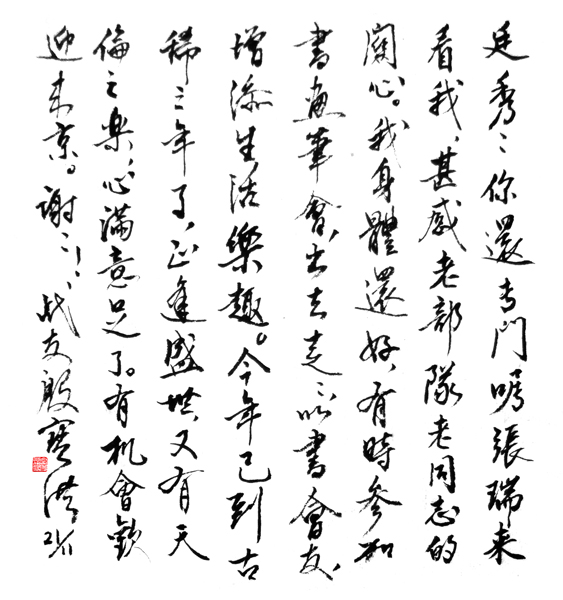 廷秀:你還专門嘱張瑞来
看我,甚感老部隊老同志的
関心。我身體還好,有時参加
書畫筆會,出去走〻,以書會友,
增添生活樂趣。今年已到古
稀之年了,正逢盛世,又有天
倫之樂,心滿意足了。有机會歡
迎来京。謝〻!战友殷寶洪